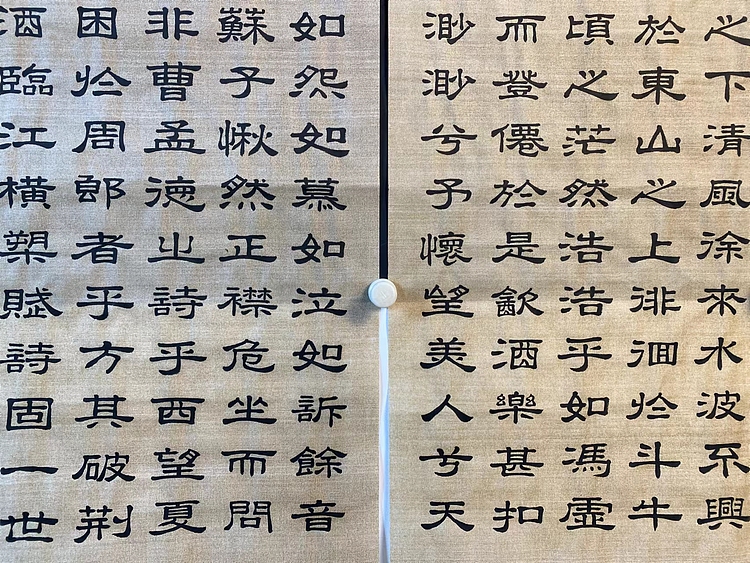 之下清風徐來水波不興
於東山之上徘徊於斗牛
頃之茫然浩浩乎如馮虛
而登僊於是飲酒樂甚扣
渺渺兮予懷望美人兮天
如怨如慕如泣如訴餘音
蘇子愀然正襟危坐而問
非曹孟德之詩乎西望夏
困於周郎者乎方其破荊
酒臨江橫槊賦詩固一世